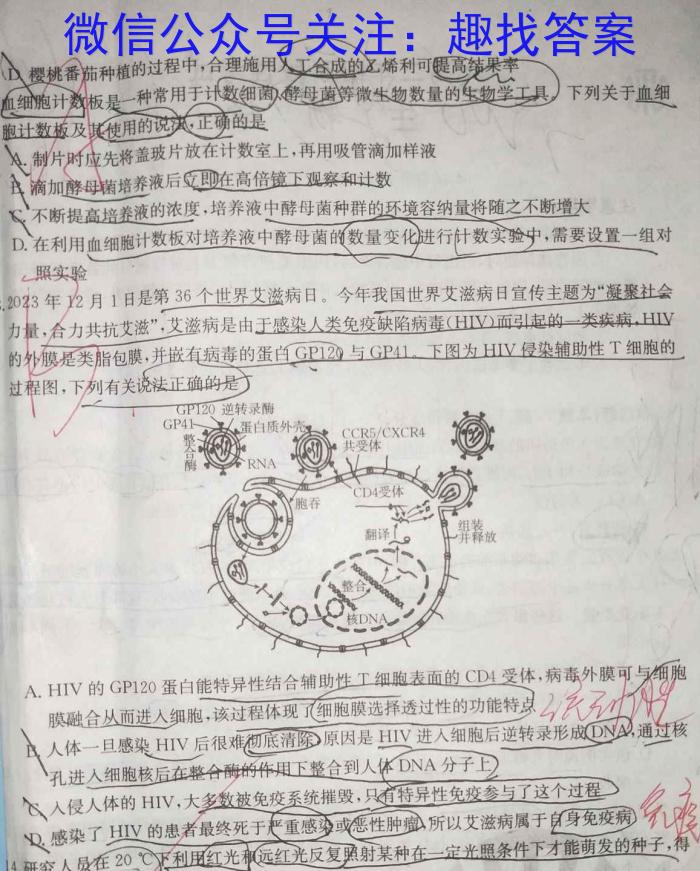 微信公众号关注：趣找答案
D. 樱桃番茄种植的过程中,合理施用人工合成的乙烯利可提高结果率
血细胞计数板是一种常用于计数细菌、酵母菌等微生物数量的生物学工具。下列关于血细
胞计数板及其使用的说法,正确的是
A. 制片时应先将盖玻片放在计数室上,再用吸管滴加样液
B. 滴加酵母菌培养液后立即在高倍镜下观察和计数
C. 不断提高培养液的浓度,培养液中酵母菌种群的环境容纳量将随之不断增大
D. 在利用血细胞计数板对培养液中酵母菌的数量变化进行计数实验中,需要设置一组对
照实验
2023 年 12 月 1 日是第 36 个世界艾滋病日。今年我国世界艾滋病日宣传主题为“凝聚社会
力量,合力共抗艾滋”,艾滋病是由于感染人类免疫缺陷病毒(HIV)而引起的一类疾病,HIV
的外膜是类脂包膜,并嵌有病毒的蛋白 GP120 与 GP41。下图为 HIV 侵染辅助性 T 细胞的
过程图,下列有关说法正确的是
GP120 逆转录酶
GP41
蛋白质外壳
整合酶
RNA
CCR5/CXCR4
共受体
胞吞
CD4受体
翻译
组装
并释放
整合
核DNA
A. HIV 的 GP120 蛋白能特异性结合辅助性 T 细胞表面的 CD4 受体,病毒外膜可与细胞
膜融合从而进入细胞,该过程体现了细胞膜选择透过性的功能特点
流动性
B. 人体一旦感染 HIV 后很难彻底清除,原因是 HIV 进入细胞后逆转录形成 DNA,通过核
孔进入细胞核后在整合酶的作用下整合到人体 DNA 分子上
C. 入侵人体的 HIV,大多数被免疫系统摧毁,只有特异性免疫参与了这个过程
D. 感染了 HIV 的患者最终死于严重感染或恶性肿瘤,所以艾滋病属于自身免疫病
14. 研究人员在 20 ℃下利用红光和远红光反复照射某种在一定光照条件下才能萌发的种子,得